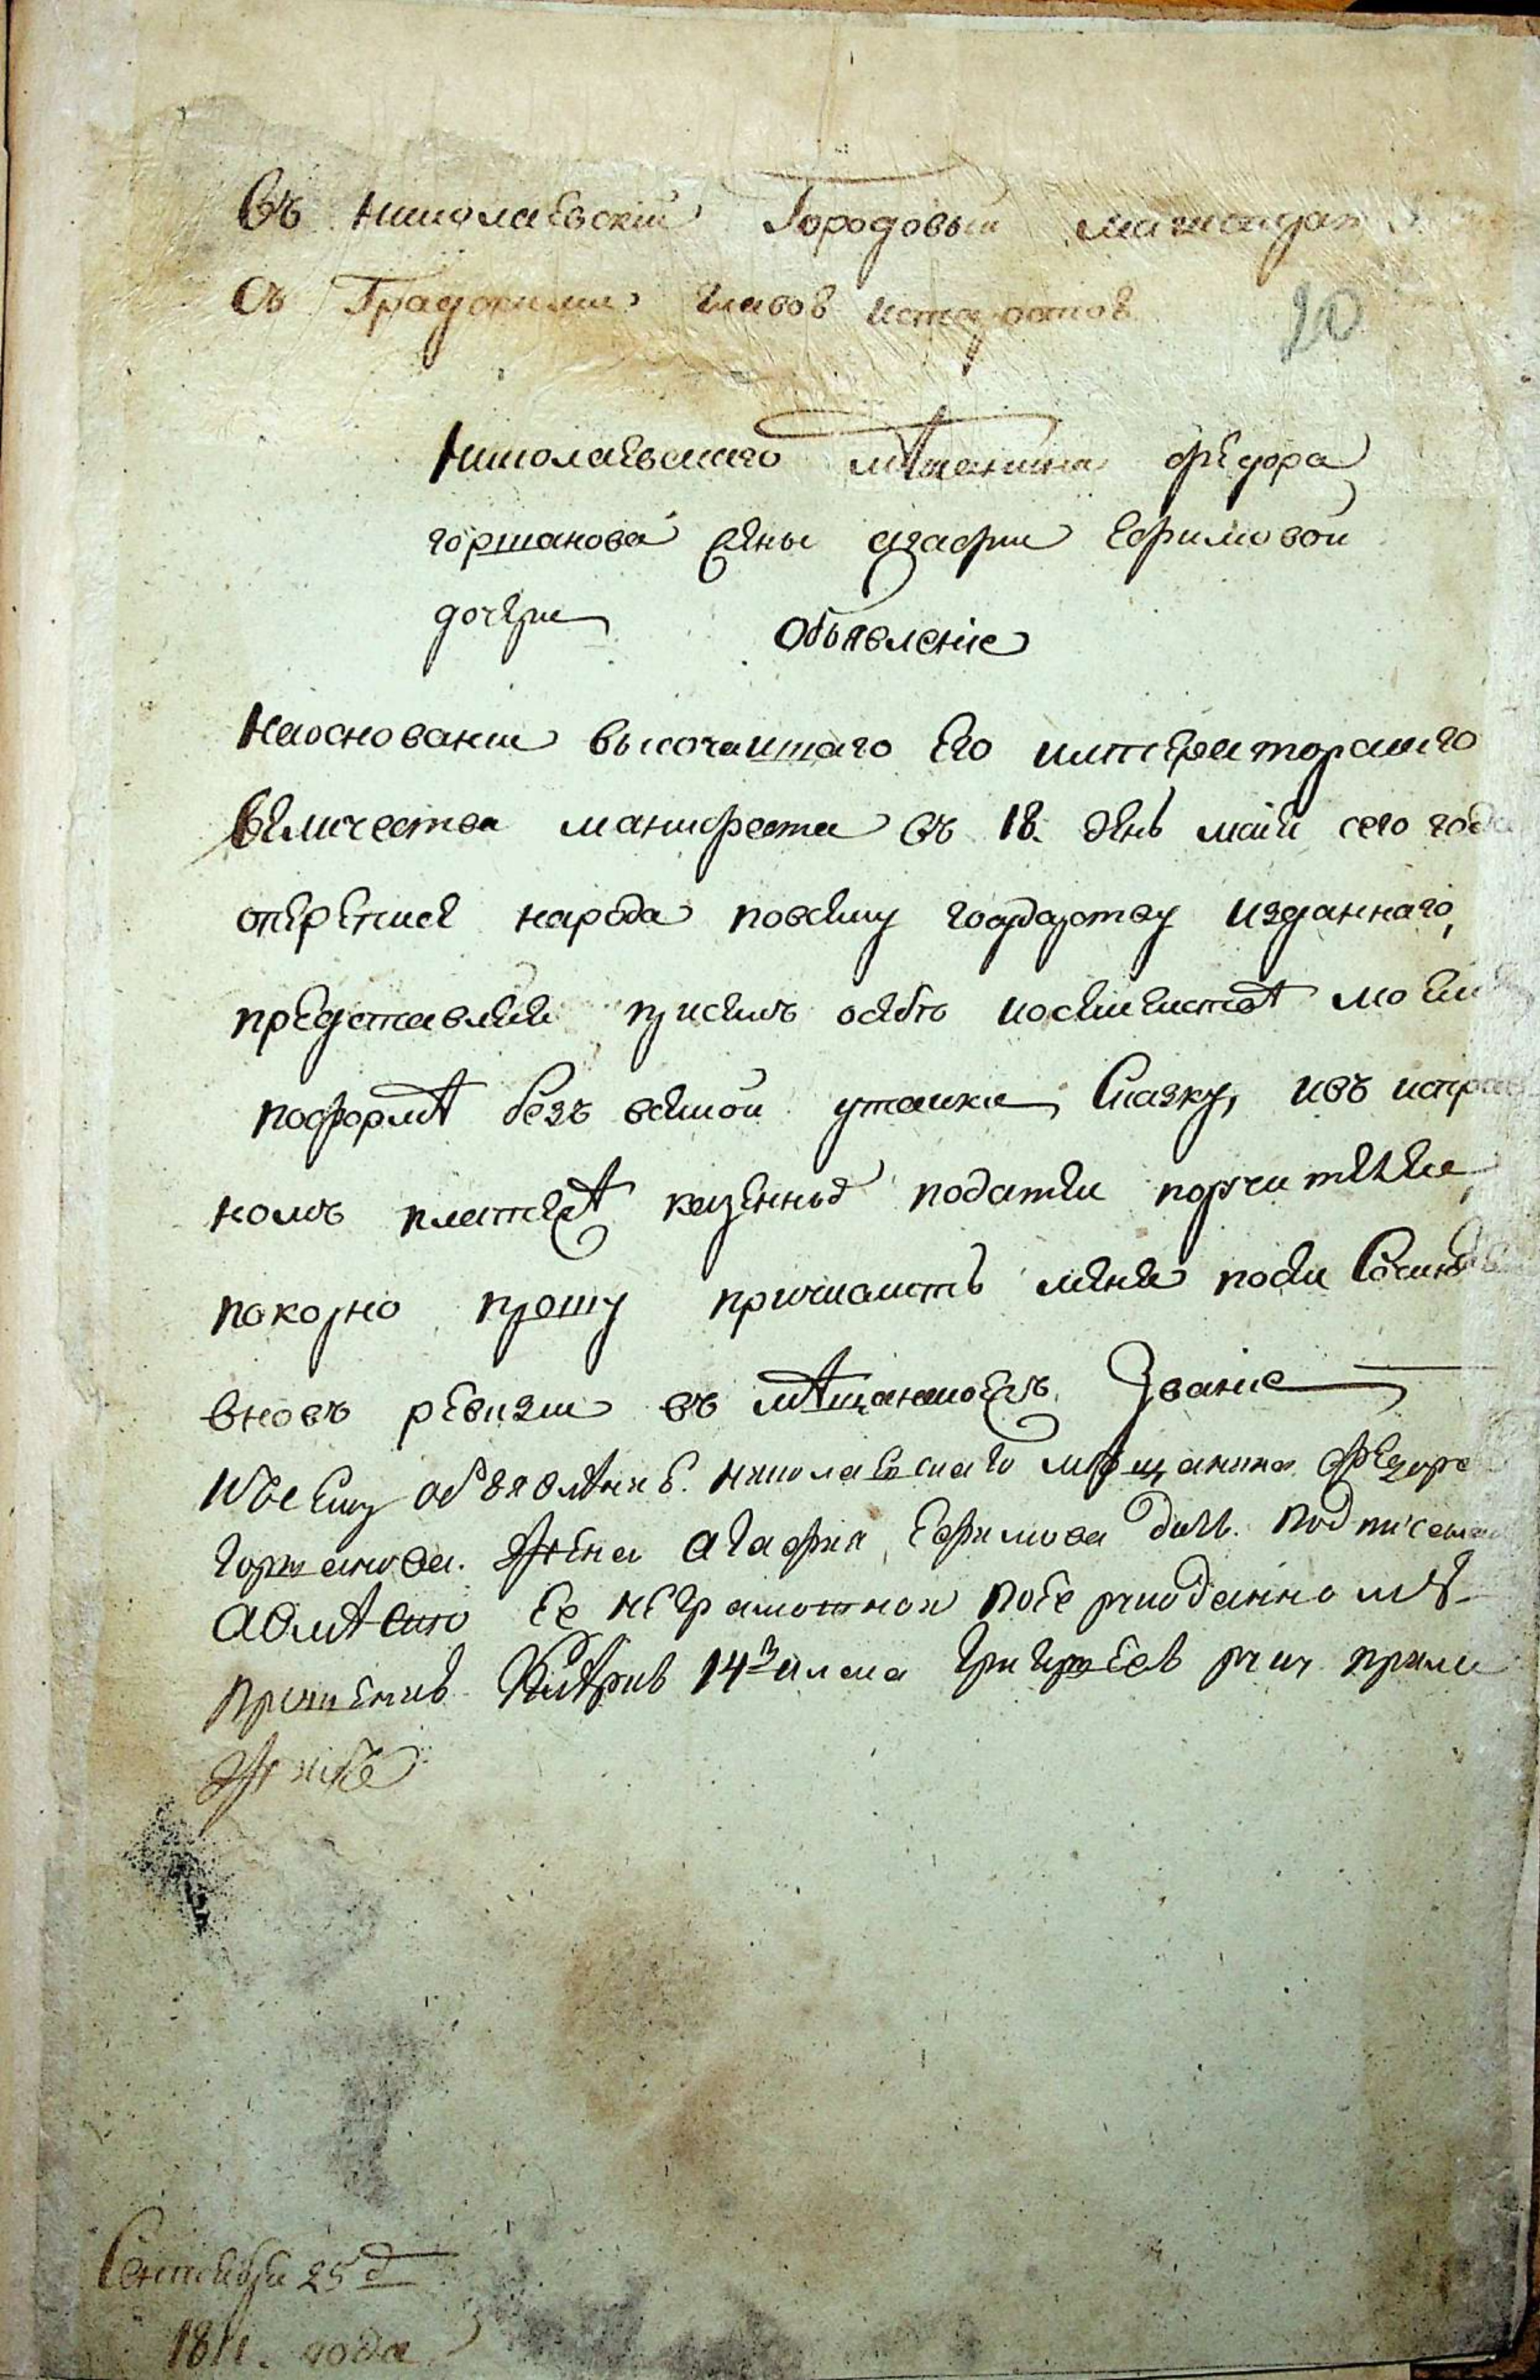 Въ николаевскій Городовый магистрат
Съ Градскими главов истаростов
20
Николаевскаго мѣщанина федора
горшанова жены агафии Ефимовой
дочери Объявленіе
Наоснованіи высочаишаго Его императорскаго
величества манифеста въ 18. день маія сего года
оперепися народа повсему государству изданнаго,
представляя присемъ осебѣ иосемеистве моем
поформѣ безъ всякой утаики Сказку, ивъ исправ
номъ платежѣ казенныхъ податеи поручителеи,
покорно прошу причислить меня посеи
вновь ревизіи въ мѣщанское Званіе
Ксему объявленію. николаевскаго мѣщанина Федора
Горшанова. жена агафия Ефимова дочь.
авмѣсто Ее неграмотной поее рукоданно му
прошению 14й класа Григорьев руку прило
жилъ
Сентября 25 д
1811. года